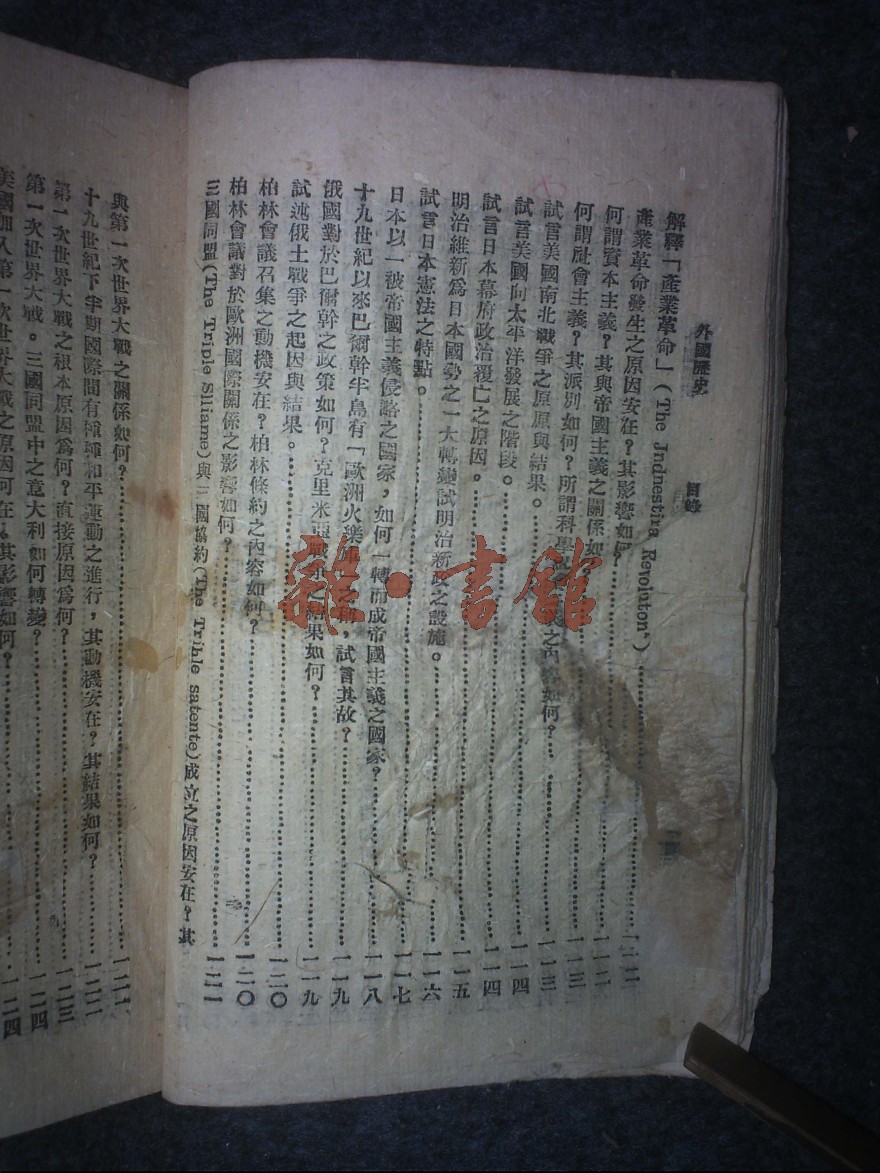 外國歷史　目錄
解釋「產業革命」(The Jndnestira Revoluton")
產業革命發生之原因安在？其影響如何？
何謂資本主義？其與帝國主義之關係如
何謂社會主義？其派別如何？所謂科學 之內 如何？
試言美國南北戰爭之原原與結果。 一一三
試言美國向太平洋發展之階段。 一一四
試言日本幕府政治覆亡之原因。 一一四
明治維新爲日本國勢之一大轉變試明治新政之設施。 一一五
試言日本憲法之特點。 一一六
日本以一被帝國主義侵略之國家，如何一轉而成帝國主義之國家？ 一一七
十九世紀以來巴爾幹半島有「歐洲火藥 之稱，試言其故？ 一一八
俄國對於巴爾幹之政策如何？克里米亞戰爭之結果如何？ 一一九
試述俄土戰爭之起因與結果。 一一九
柏林會議召集之動機安在？柏林條約之內容如何？ 一二〇
柏林會議對於歐洲國際關係之影響如何？ 一二〇
三國同盟(The Triple Slliame)與三國協約(The Trible satente)成立之原因安在？其 一二一
與第一次世界大戰之關係如何？
十九世紀下半期國際間有種種和平運動之進行，其動機安在？其結果如何？
第一次世界大戰之根本原因爲何？直接原因爲何？ 一二三
第一次世界大戰。三國同盟中之意大利如何轉變？ 一二四
美國加入第一次世界大戰之原因何在？其影響如何？ 一二四
雜·書館